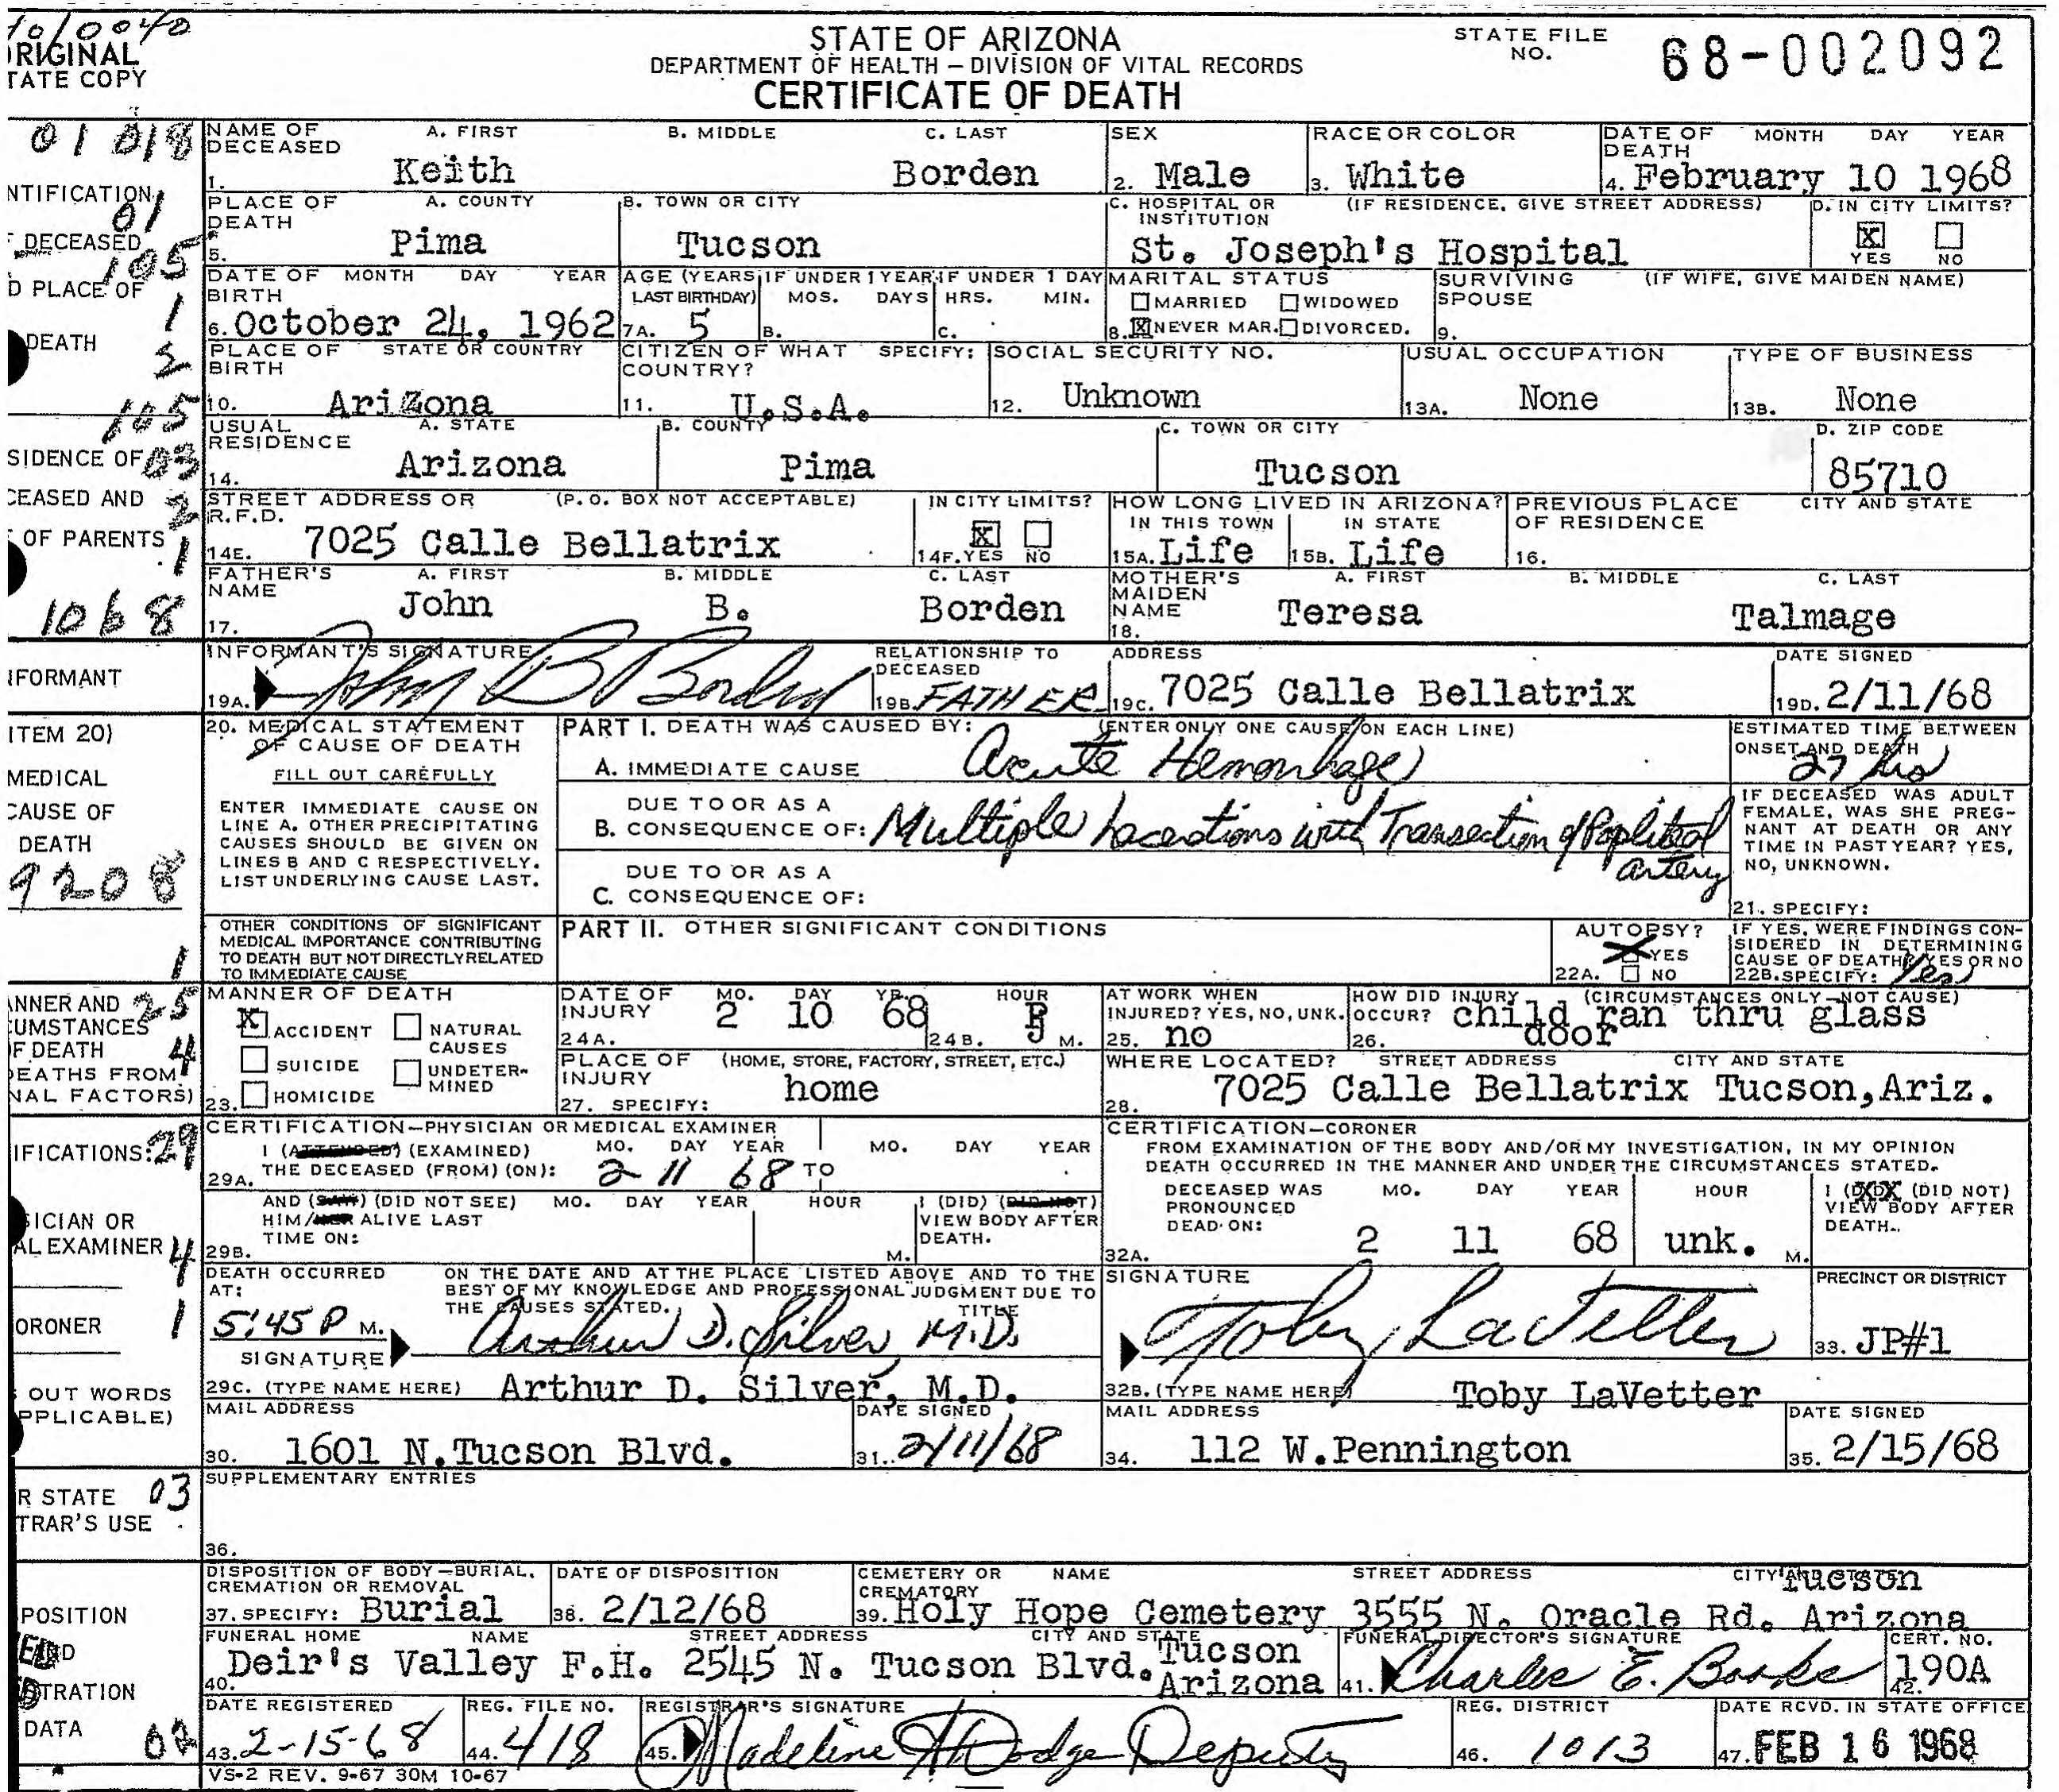 10/0040
ORIGINAL
STATE COPY
STATE OF ARIZONA
DEPARTMENT OF HEALTH — DIVISION OF VITAL RECORDS
CERTIFICATE OF DEATH
STATE FILE NO. 68-002092
01 018
NAME OF DECEASED A. FIRST B. MIDDLE C. LAST SEX RACE OR COLOR DATE OF DEATH MONTH DAY YEAR
1. Keith Borden 2. Male 3. White 4. February 10 1968
NTIFICATION 01
DECEASED 105
D PLACE OF 1
DEATH 2
PLACE OF DEATH A. COUNTY B. TOWN OR CITY C. HOSPITAL OR INSTITUTION (IF RESIDENCE, GIVE STREET ADDRESS) D. IN CITY LIMITS?
5. Pima Tucson St. Joseph's Hospital X YES NO
DATE OF BIRTH MONTH DAY YEAR AGE (YEARS LAST BIRTHDAY) IF UNDER 1 YEAR MOS. DAYS IF UNDER 1 DAY HRS. MIN. MARITAL STATUS SURVIVING SPOUSE (IF WIFE, GIVE MAIDEN NAME)
MARRIED WIDOWED
6. October 24, 1962 7A. 5 B. C. 8. X NEVER MAR. DIVORCED. 9.
PLACE OF BIRTH STATE OR COUNTRY CITIZEN OF WHAT COUNTRY? SPECIFY: SOCIAL SECURITY NO. USUAL OCCUPATION TYPE OF BUSINESS
10. Arizona 11. U.S.A. 12. Unknown 13A. None 13B. None
105
SIDENCE OF 03
CEASED AND 2
OF PARENTS 1
1068
USUAL RESIDENCE A. STATE B. COUNTY C. TOWN OR CITY D. ZIP CODE
14. Arizona Pima Tucson 85710
STREET ADDRESS OR R.F.D. (P.O. BOX NOT ACCEPTABLE) IN CITY LIMITS? HOW LONG LIVED IN ARIZONA? IN THIS TOWN IN STATE PREVIOUS PLACE OF RESIDENCE CITY AND STATE
14E. 7025 Calle Bellatrix 14F. X YES NO 15A. Life 15B. Life 16.
FATHER'S NAME A. FIRST B. MIDDLE C. LAST MOTHER'S MAIDEN NAME A. FIRST B. MIDDLE C. LAST
17. John B. Borden 18. Teresa Talmage
NFORMANT
INFORMANT'S SIGNATURE RELATIONSHIP TO DECEASED ADDRESS DATE SIGNED
19A. John B Borden 19B. FATHER 19C. 7025 Calle Bellatrix 19D. 2/11/68
ITEM 20)
MEDICAL
CAUSE OF
DEATH
9208
1
20. MEDICAL STATEMENT OF CAUSE OF DEATH
FILL OUT CAREFULLY
ENTER IMMEDIATE CAUSE ON
LINE A. OTHER PRECIPITATING
CAUSES SHOULD BE GIVEN ON
LINES B AND C RESPECTIVELY.
LIST UNDERLYING CAUSE LAST.
PART I. DEATH WAS CAUSED BY: (ENTER ONLY ONE CAUSE ON EACH LINE)
A. IMMEDIATE CAUSE Acute Hemorrhage
DUE TO OR AS A
B. CONSEQUENCE OF: Multiple Lacerations with Transection of Popliteal artery
DUE TO OR AS A
C. CONSEQUENCE OF:
ESTIMATED TIME BETWEEN ONSET AND DEATH
hrs
IF DECEASED WAS ADULT
FEMALE, WAS SHE PREG-
NANT AT DEATH OR ANY
TIME IN PAST YEAR? YES,
NO, UNKNOWN.
21. SPECIFY:
OTHER CONDITIONS OF SIGNIFICANT
MEDICAL IMPORTANCE CONTRIBUTING
TO DEATH BUT NOT DIRECTLY RELATED
TO IMMEDIATE CAUSE
PART II. OTHER SIGNIFICANT CONDITIONS
AUTOPSY? X YES
22A. NO
IF YES, WERE FINDINGS CON-
SIDERED IN DETERMINING
CAUSE OF DEATH? YES OR NO
22B. SPECIFY: Yes
ANNER AND 25
CUMSTANCES
OF DEATH 4
DEATHS FROM
NAL FACTORS)
MANNER OF DEATH
X ACCIDENT NATURAL CAUSES
SUICIDE UNDETERMINED
23. HOMICIDE
DATE OF INJURY MO. DAY YR. HOUR
24A. 2 10 68 24B. M.
AT WORK WHEN INJURED? YES, NO, UNK.
25. no
HOW DID INJURY OCCUR? (CIRCUMSTANCES ONLY—NOT CAUSE)
26. child ran thru glass door
PLACE OF INJURY (HOME, STORE, FACTORY, STREET, ETC.)
27. SPECIFY: home
WHERE LOCATED? STREET ADDRESS CITY AND STATE
28. 7025 Calle Bellatrix Tucson, Ariz.
IFICATIONS: 29
SICIAN OR
AL EXAMINER 4
ORONER 1
OUT WORDS
PPLICABLE)
CERTIFICATION—PHYSICIAN OR MEDICAL EXAMINER
I (ATTENDED) (EXAMINED) MO. DAY YEAR MO. DAY YEAR
THE DECEASED (FROM) (ON): 2 11 68 TO
29A.
AND (SAW) (DID NOT SEE) MO. DAY YEAR HOUR I (DID) (DID NOT)
HIM/HER ALIVE LAST VIEW BODY AFTER
TIME ON: DEATH.
29B. M.
DEATH OCCURRED AT: ON THE DATE AND AT THE PLACE LISTED ABOVE AND TO THE
BEST OF MY KNOWLEDGE AND PROFESSIONAL JUDGMENT DUE TO
THE CAUSES STATED. TITLE
5:45 P M. Arthur D. Silver, M.D.
SIGNATURE
29C. (TYPE NAME HERE) Arthur D. Silver, M.D.
MAIL ADDRESS DATE SIGNED
30. 1601 N.Tucson Blvd. 31. 2/11/68
CERTIFICATION—CORONER
FROM EXAMINATION OF THE BODY AND/OR MY INVESTIGATION, IN MY OPINION
DEATH OCCURRED IN THE MANNER AND UNDER THE CIRCUMSTANCES STATED.
DECEASED WAS PRONOUNCED DEAD ON: MO. DAY YEAR HOUR I (DID) (DID NOT) VIEW BODY AFTER DEATH.
32A. 2 11 68 unk. M.
SIGNATURE PRECINCT OR DISTRICT
Toby LaVetter 33. JP#1
32B. (TYPE NAME HERE) Toby LaVetter
MAIL ADDRESS DATE SIGNED
34. 112 W.Pennington 35. 2/15/68
R STATE 03
TRAR'S USE
SUPPLEMENTARY ENTRIES
36.
POSITION
DATA
TRATION
DISPOSITION OF BODY—BURIAL, CREMATION OR REMOVAL DATE OF DISPOSITION CEMETERY OR CREMATORY NAME STREET ADDRESS CITY AND STATE
37. SPECIFY: Burial 38. 2/12/68 39. Holy Hope Cemetery 3555 N. Oracle Rd. Tucson Arizona
FUNERAL HOME NAME STREET ADDRESS CITY AND STATE FUNERAL DIRECTOR'S SIGNATURE CERT. NO.
40. Deir's Valley F.H. 2545 N. Tucson Blvd. Tucson Arizona 41. Charles E. 42. 190A
DATE REGISTERED REG. FILE NO. REGISTRAR'S SIGNATURE REG. DISTRICT DATE RCVD. IN STATE OFFICE
43. 2-15-68 44. 418 45. Madeline H Dodge Deputy 46. 1013 47. FEB 16 1968
VS-2 REV. 9-67 30M 10-67